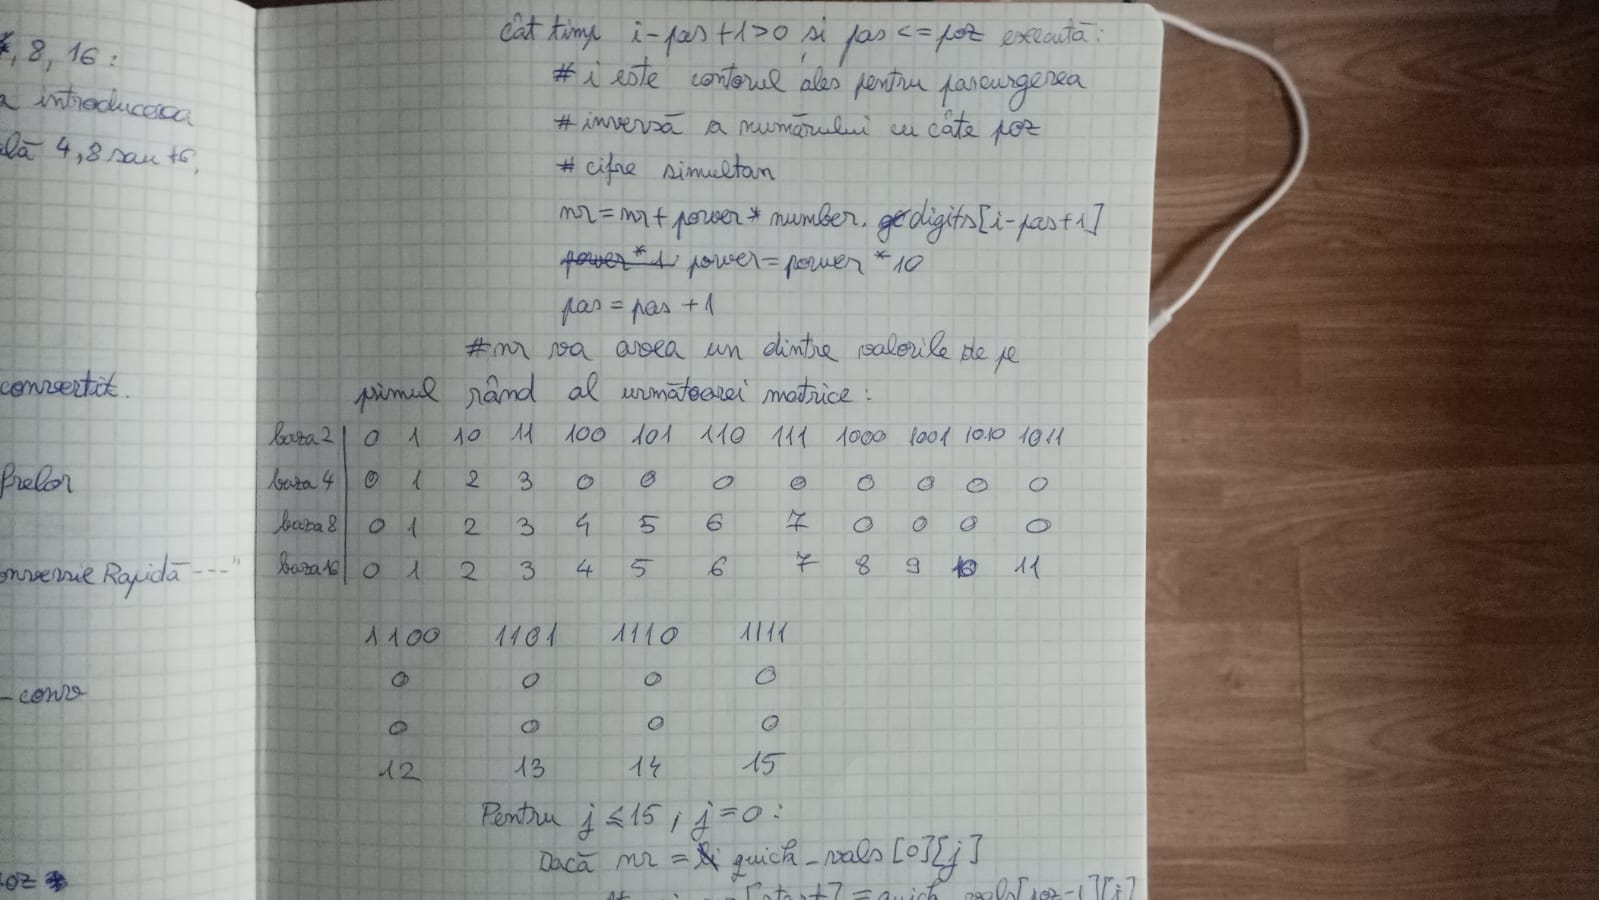 , 8, 16:
introducerea
4, 8 sau 16,
convertit.
Rapidă ---"
- conv
cât timp i-pas+1>0 și pas <= poz execută:
# i este contorul ales pentru parcurgerea
# inversă a numărului cu câte poz
# cifre simultan
nr = nr + power * number. digits[i-pas+1]
power = power * 10
pas = pas + 1
# nr va avea un dintre valorile de pe
primul rând al următoarei matrice:
baza 2 | 0 1 10 11 100 101 110 111 1000 1001 1010 1011
baza 4 | 0 1 2 3 0 0 0 0 0 0 0 0
baza 8 | 0 1 2 3 4 5 6 7 0 0 0 0
baza 16 | 0 1 2 3 4 5 6 7 8 9 10 11
1100 1101 1110 1111
0 0 0 0
0 0 0 0
12 13 14 15
Pentru j ≤ 15, j = 0:
Dacă nr = quick_vals [0][j]